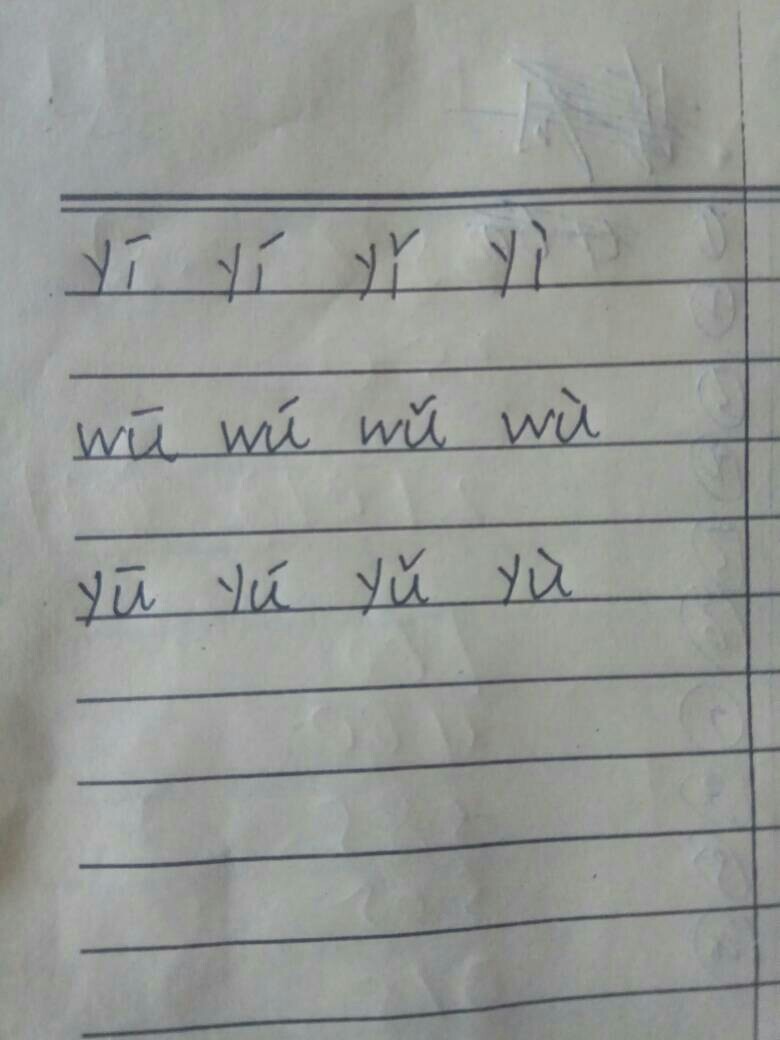 yī yí yǐ yì
wū wú wǔ wù
yū yú yǔ yù